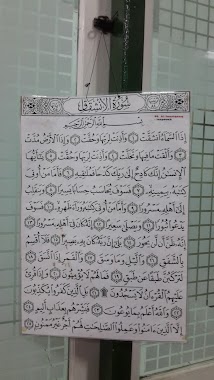 سُورَةُ الْإِنْشِقَاقِ
بِسْمِ اللَّهِ الرَّحْمَٰنِ الرَّحِيمِ
إِذَا السَّمَاءُ انْشَقَّتْ ۝ وَأَذِنَتْ لِرَبِّهَا وَحُقَّتْ ۝ وَإِذَا الْأَرْضُ مُدَّتْ
۝ وَأَلْقَتْ مَا فِيهَا وَتَخَلَّتْ ۝ وَأَذِنَتْ لِرَبِّهَا وَحُقَّتْ ۝ يَا أَيُّهَا
الْإِنْسَانُ إِنَّكَ كَادِحٌ إِلَىٰ رَبِّكَ كَدْحًا فَمُلَاقِيهِ ۝ فَأَمَّا مَنْ أُوتِيَ
كِتَابَهُ بِيَمِينِهِ ۝ فَسَوْفَ يُحَاسَبُ حِسَابًا يَسِيرًا ۝ وَيَنْقَلِبُ
إِلَىٰ أَهْلِهِ مَسْرُورًا ۝ وَأَمَّا مَنْ أُوتِيَ كِتَابَهُ وَرَاءَ ظَهْرِهِ ۝ فَسَوْفَ
يَدْعُو ثُبُورًا ۝ وَيَصْلَىٰ سَعِيرًا ۝ إِنَّهُ كَانَ فِي أَهْلِهِ مَسْرُورًا ۝
إِنَّهُ ظَنَّ أَنْ لَنْ يَحُورَ ۝ بَلَىٰ إِنَّ رَبَّهُ كَانَ بِهِ بَصِيرًا ۝ فَلَا أُقْسِمُ
بِالشَّفَقِ ۝ وَاللَّيْلِ وَمَا وَسَقَ ۝ وَالْقَمَرِ إِذَا اتَّسَقَ ۝
لَتَرْكَبُنَّ طَبَقًا عَنْ طَبَقٍ ۝ فَمَا لَهُمْ لَا يُؤْمِنُونَ ۝ وَإِذَا قُرِئَ
عَلَيْهِمُ الْقُرْآنُ لَا يَسْجُدُونَ ۩ ۝ بَلِ الَّذِينَ كَفَرُوا يُكَذِّبُونَ
۝ وَاللَّهُ أَعْلَمُ بِمَا يُوعُونَ ۝ فَبَشِّرْهُمْ بِعَذَابٍ أَلِيمٍ ۝
إِلَّا الَّذِينَ آمَنُوا وَعَمِلُوا الصَّالِحَاتِ لَهُمْ أَجْرٌ غَيْرُ مَمْنُونٍ ۝